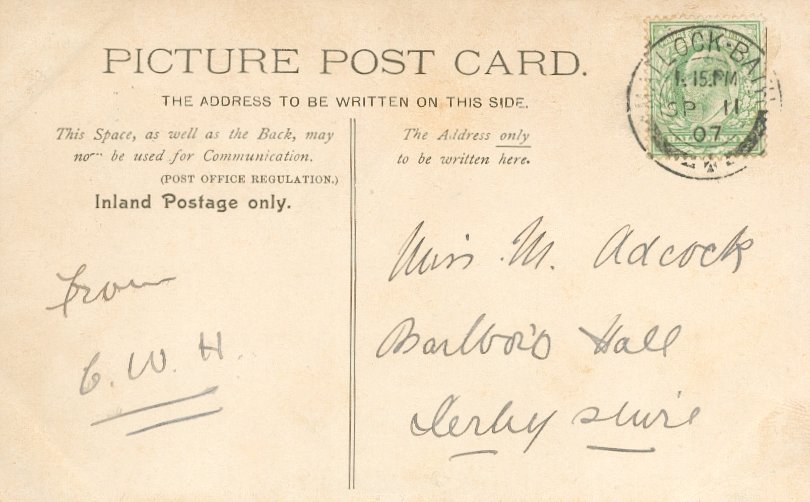 PICTURE POST CARD.
THE ADDRESS TO BE WRITTEN ON THIS SIDE.
This Space, as well as the Back, may
now be used for Communication.
(POST OFFICE REGULATION.)
Inland Postage only.
The Address only
to be written here.
MATLOCK·BATH
1.15.PM
SP 11
07
from
C. W. H.
Miss M. Adcock
Barlboro Hall
Derbyshire